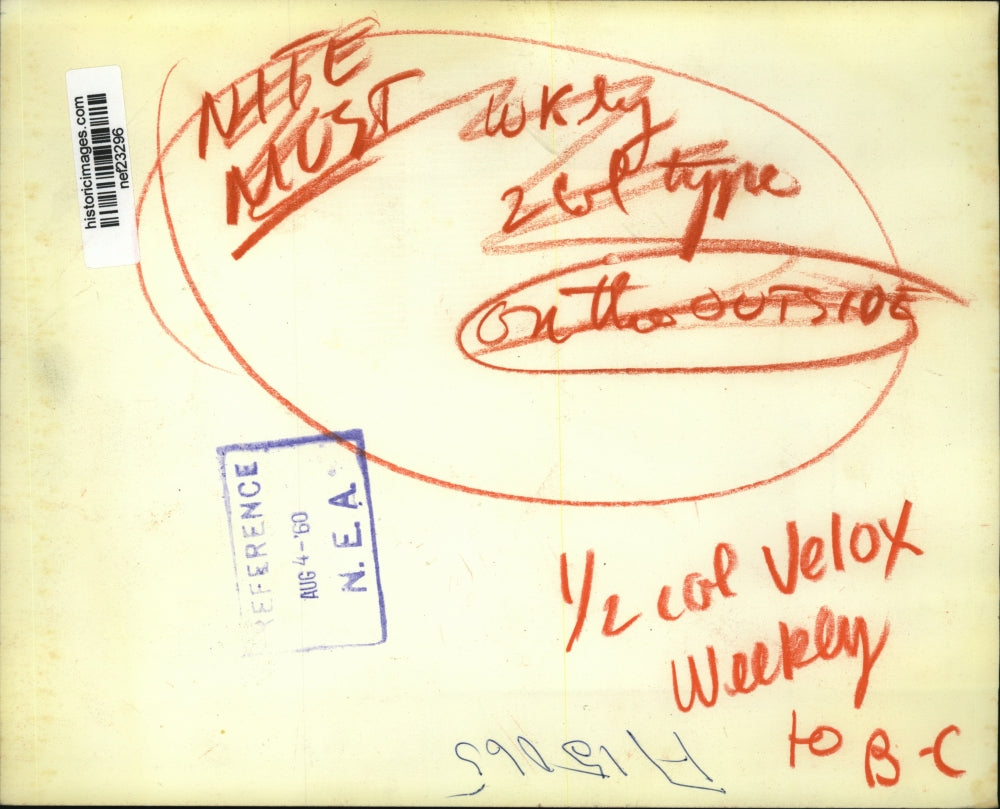 historicimages.com
nef23296
NITE
MUST
WKly
2 Col type
On the OUTSIDE
REFERENCE
AUG 4-'60
N. E. A.
1/2 col Velox
Weekly
to B-C